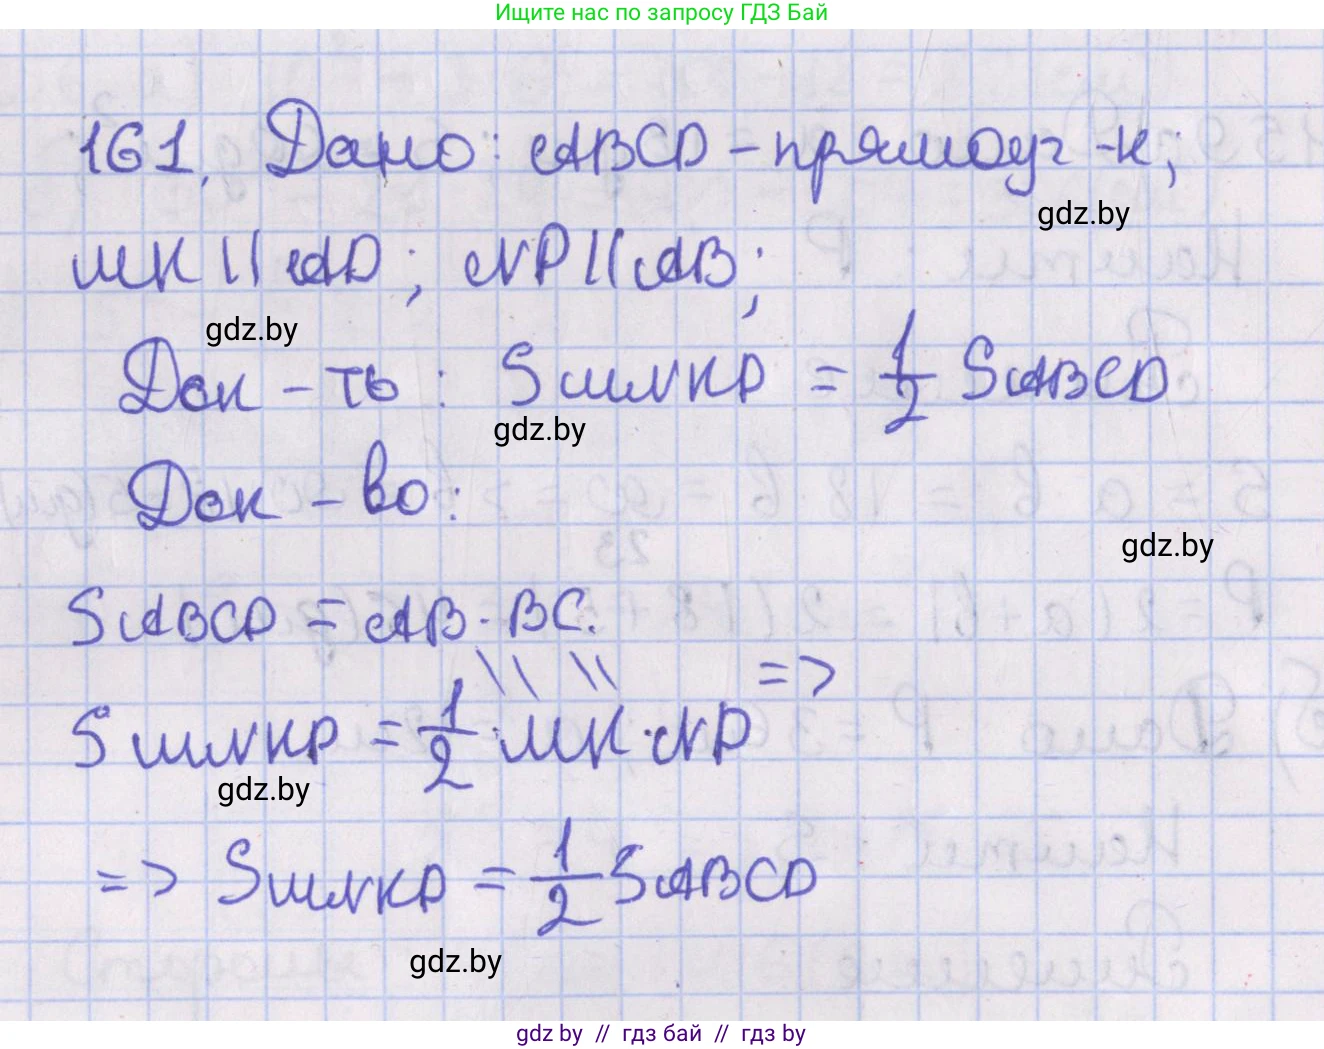 Ищите нас по запросу ГДЗ Бай
161. Дано: ABCD – прямоуг-к;
gdz.by
MK || AD; NP || AB;
gdz.by
Док-ть: SMNKP = 1/2 SABCD
gdz.by
Док-во:
gdz.by
SABCD = AB · BC.
\\ \\ =>
SMNKP = 1/2 · MK · NP
gdz.by
=> SMNKP = 1/2 SABCD
gdz.by
gdz by // гдз бай // гдз by